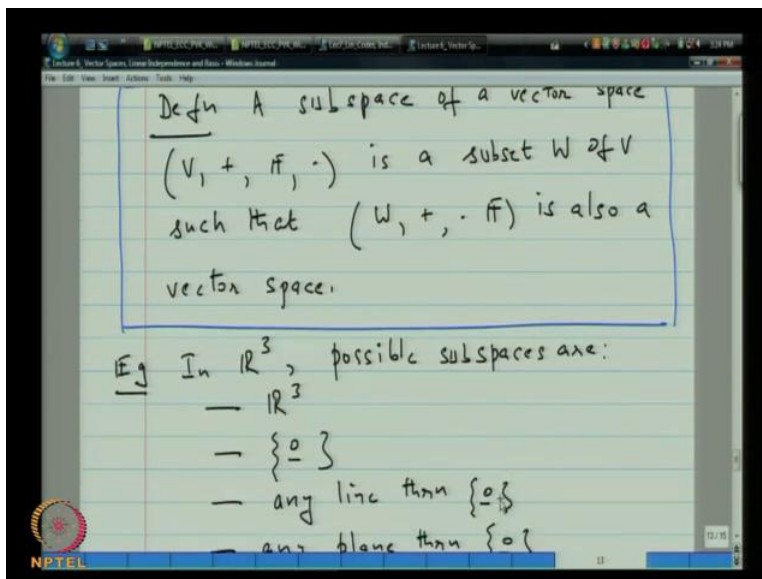 Lecture 6_ Vector Spaces, Linear Independence and Basis - Windows Journal
File Edit View Insert Actions Tools Help
Defn A subspace of a vector space
(V, +, F, ·) is a subset W of V
such that (W, +, · F) is also a
vector space.
Eg In ℝ³, possible subspaces are:
— ℝ³
— {0}
— any line thru {0}
— any plane thru {0}
13 / 15
13
NPTEL